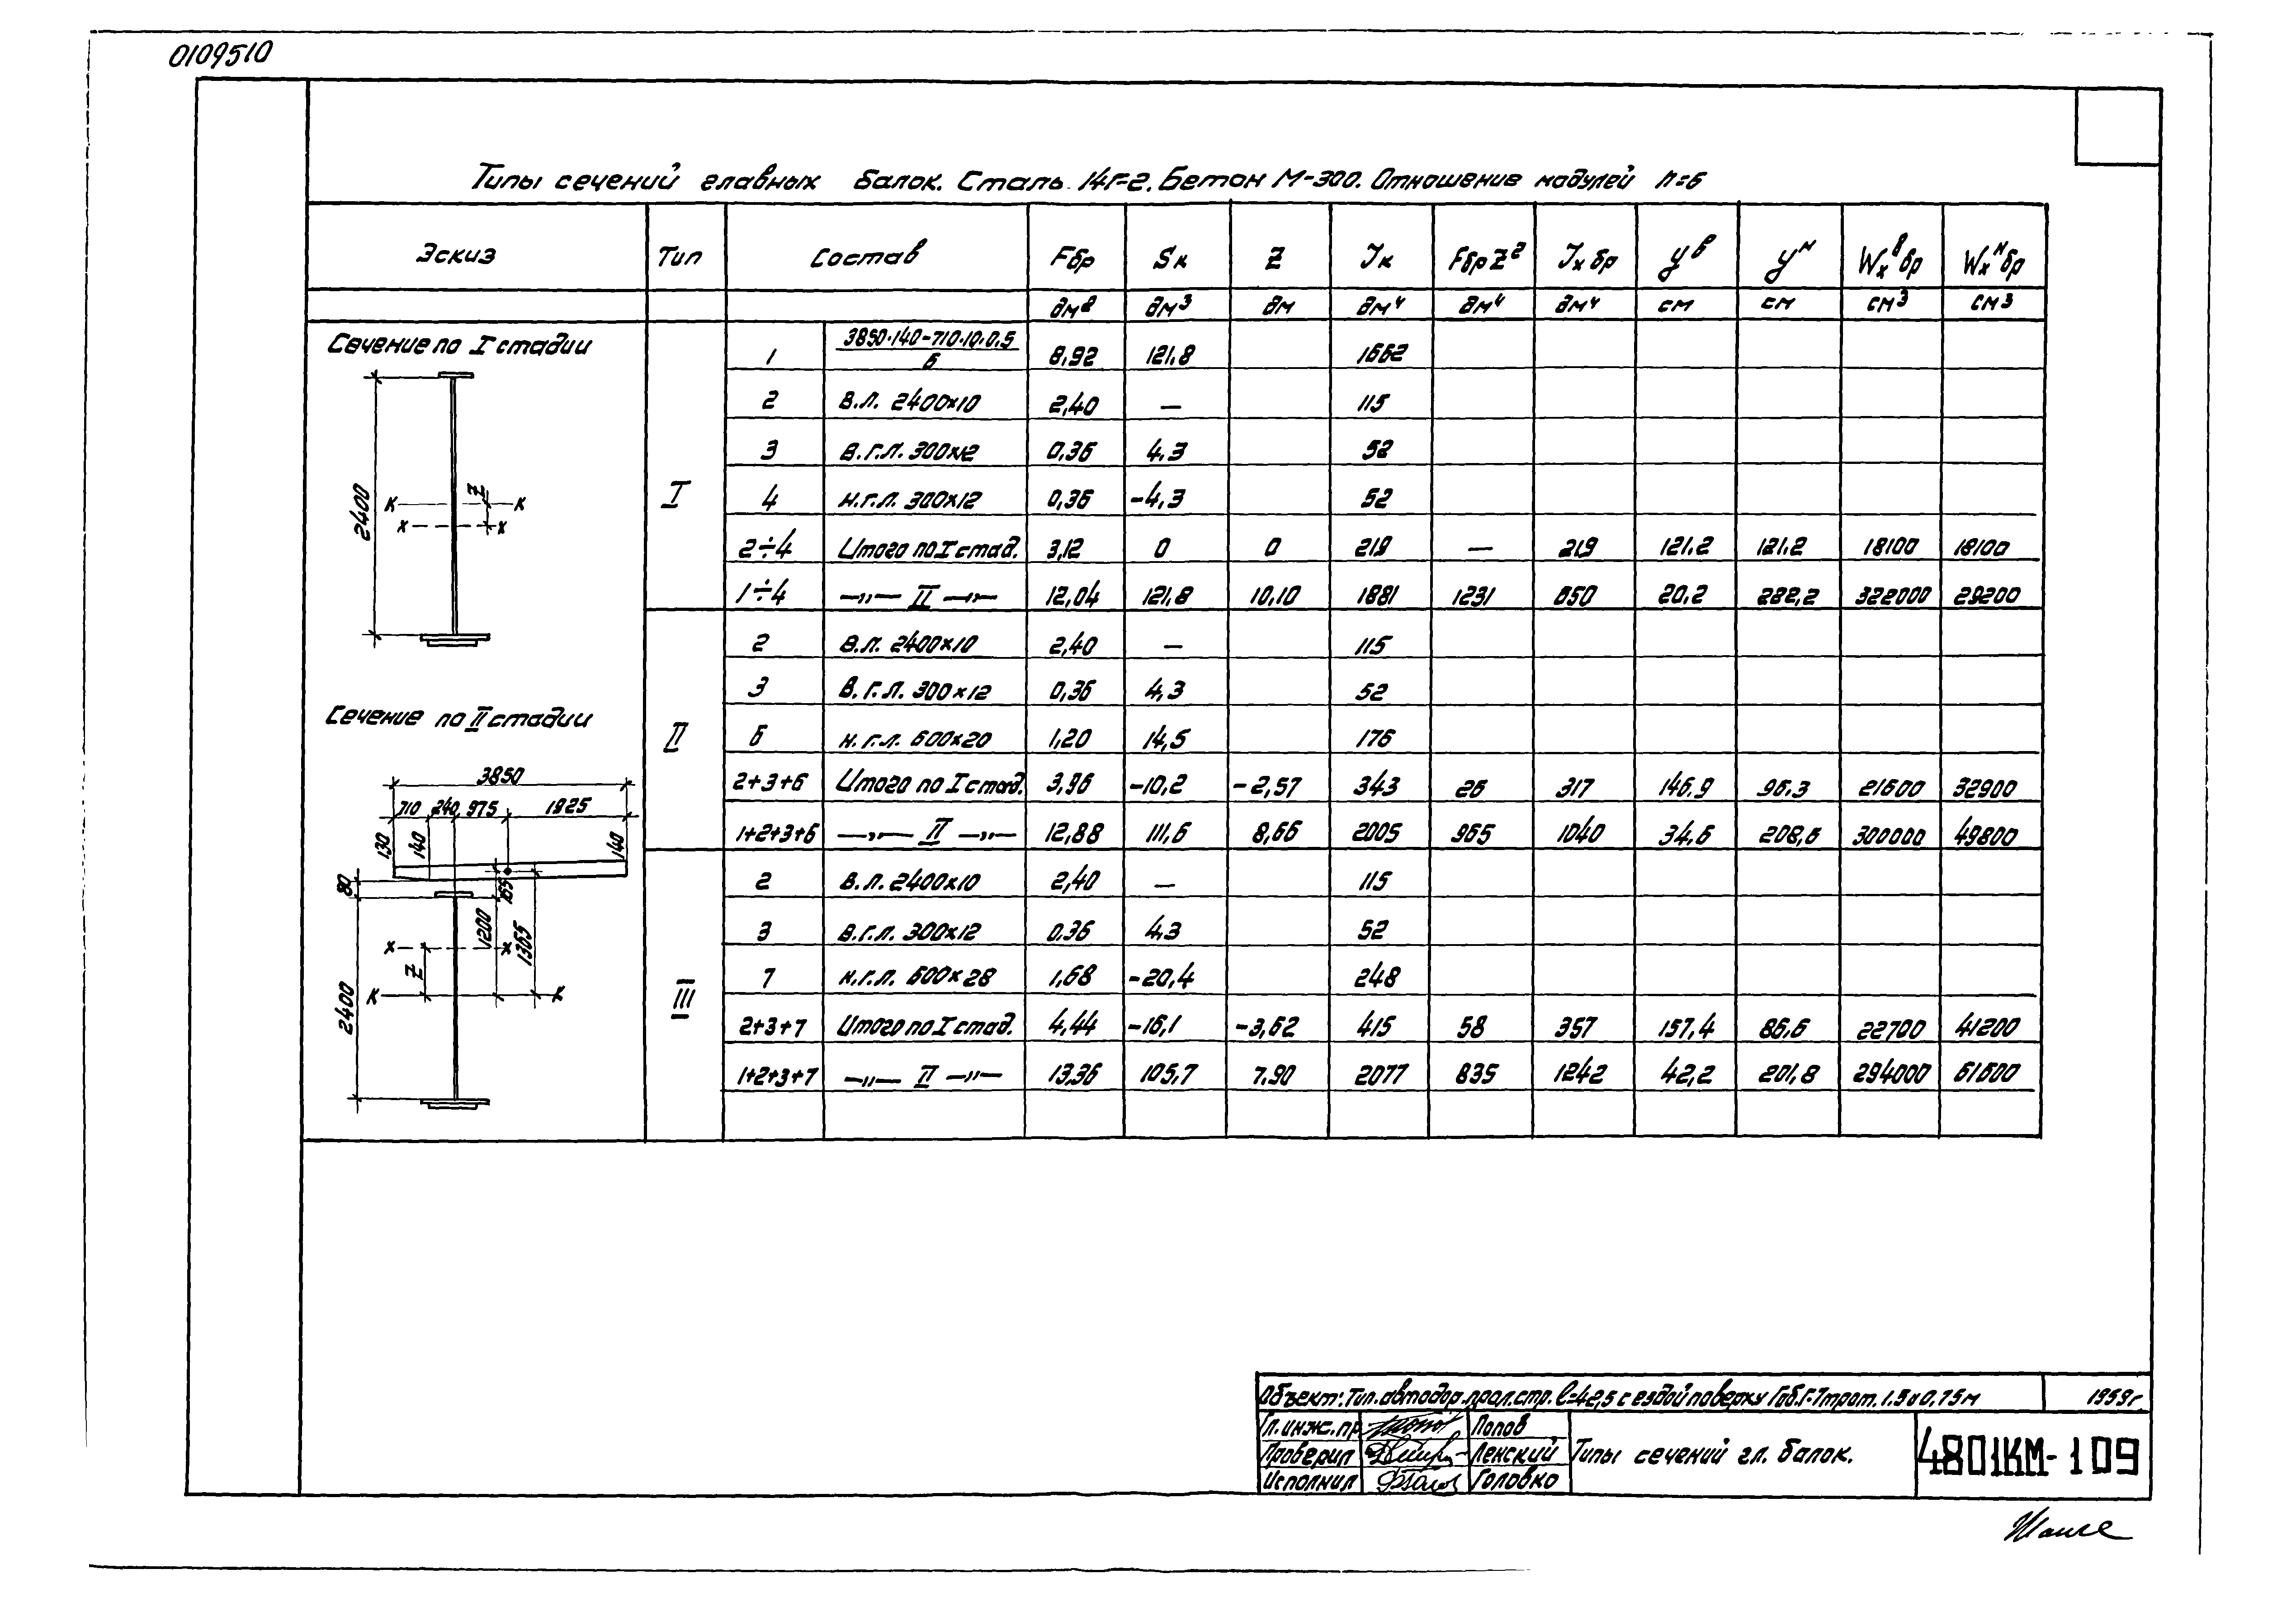 0109510
Типы сечений главных балок. Сталь 14Г-2. Бетон М-300. Отношение модулей n=6
Эскиз Тип Состав Fбр Sк Z Jк FбрZ² Jх бр yᵇ yᴴ Wₓᵇбр Wₓᴴбр
дм² дм³ дм дм⁴ дм⁴ дм⁴ см см см³ см³
Сечение по I стадии
2400
К К
Z
х х
Сечение по II стадии
3850
710 240 975 1925
130 140 140
80
165
1200
1365
х х
Z
К К
2400
I
1 3850·140-710·10·0.5 / 6 8,92 121,8 1662
2 В.Л. 2400×10 2,40 — 115
3 В.Г.Л. 300×12 0,36 4,3 52
4 Н.Г.Л. 300×12 0,36 -4,3 52
2÷4 Итого по I стад. 3,12 0 0 219 — 219 121,2 121,2 18100 18100
1÷4 —„— II —„— 12,04 121,8 10,10 1881 1231 650 20,2 282,2 322000 29200
II
2 В.Л. 2400×10 2,40 — 115
3 В.Г.Л. 300×12 0,36 4,3 52
6 Н.Г.Л. 600×20 1,20 14,5 176
2+3+6 Итого по I стад. 3,96 -10,2 -2,57 343 26 317 146.9 96.3 21600 32900
1+2+3+6 —„— II —„— 12,88 111,6 8,66 2005 965 1040 34,6 208,6 300000 49800
III
2 В.Л. 2400×10 2,40 — 115
3 В.Г.Л. 300×12 0.36 4,3 52
7 Н.Г.Л. 600×28 1,68 -20,4 248
2+3+7 Итого по I стад. 4,44 -16,1 -3,62 415 58 357 157,4 86,6 22700 41200
1+2+3+7 —„— II —„— 13,36 105,7 7.90 2077 835 1242 42,2 201,8 294000 61600
Объект: Тип. автодор. прол. стр. l=42,5 с ездой поверху Габ.Г-7 трот. 1.5 и 0,75м 1959г.
Гл. инж. пр Попов
Проверил Ленский
Исполнил Головко
Типы сечений гл. балок.
4801КМ-109